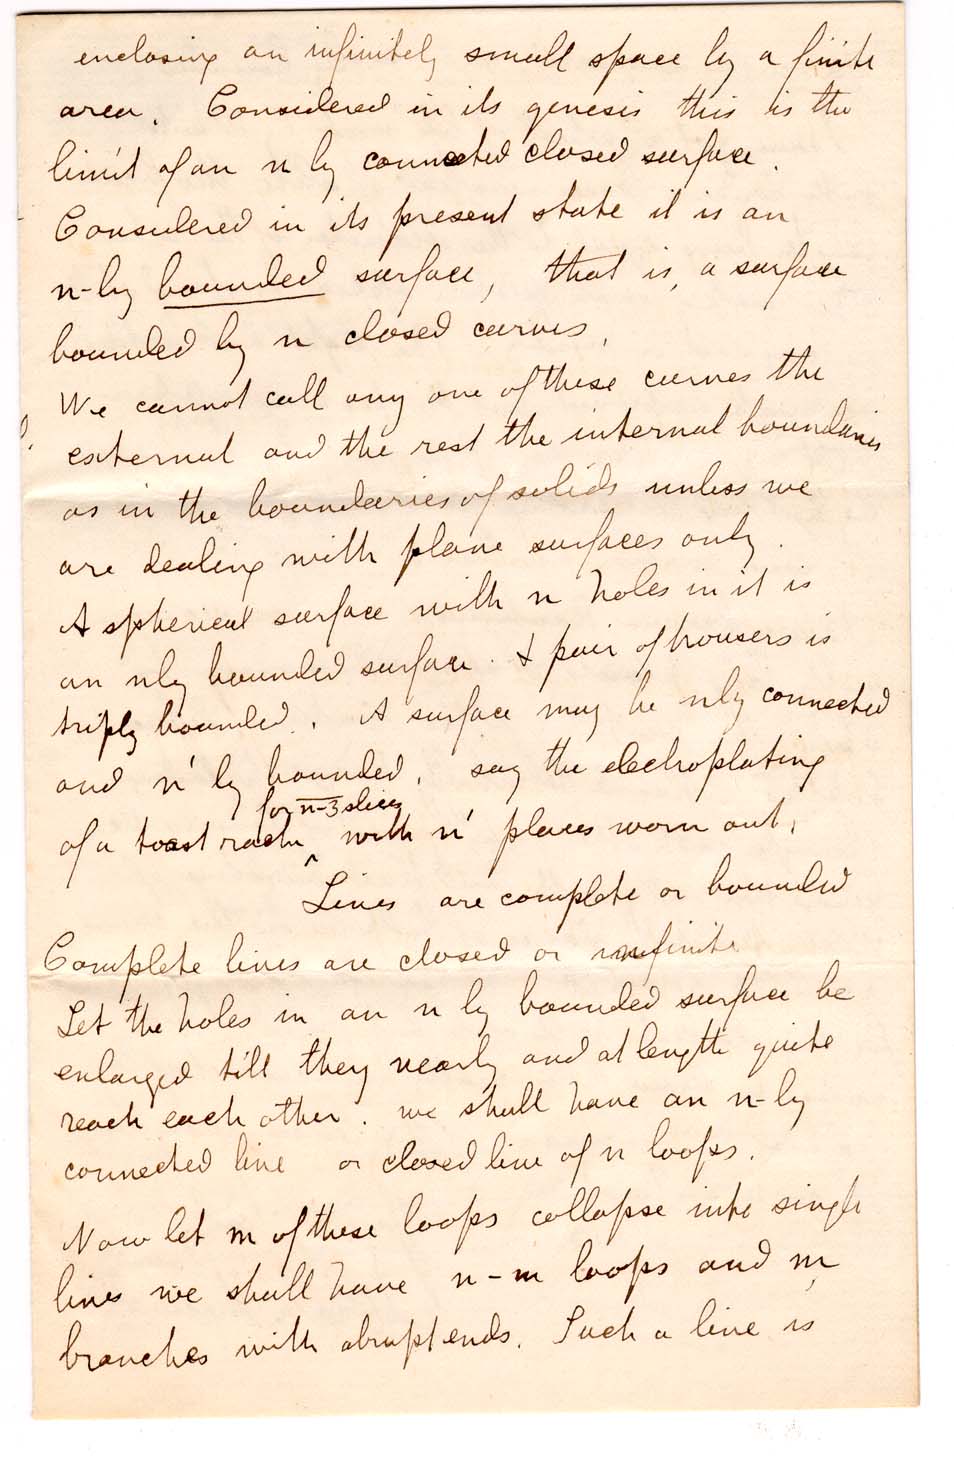 enclosing an infinitely small space by a finite
area. Considered in its genesis this is the
limit of an n ly connected closed surface.
Considered in its present state it is an
n-ly bounded surface, that is, a surface
bounded by n closed curves.
We cannot call any one of these curves the
external and the rest the internal boundaries
as in the boundaries of solids unless we
are dealing with plane surfaces only.
A spherical surface with n holes in it is
an nly bounded surface. A pair of trousers is
triply bounded. A surface may be nly connected
and n' ly bounded, say the electroplating
for n-3 slices
of a toast rack ^ with n' places worn out.
Lines are complete or bounded
Complete lines are closed or infinite
Let the holes in an n ly bounded surface be
enlarged till they nearly and at length quite
reach each other. we shall have an n-ly
connected line or closed line of n loops.
Now let m of these loops collapse into single
lines we shall have n-m loops and m
branches with abrupt ends. Such a line is